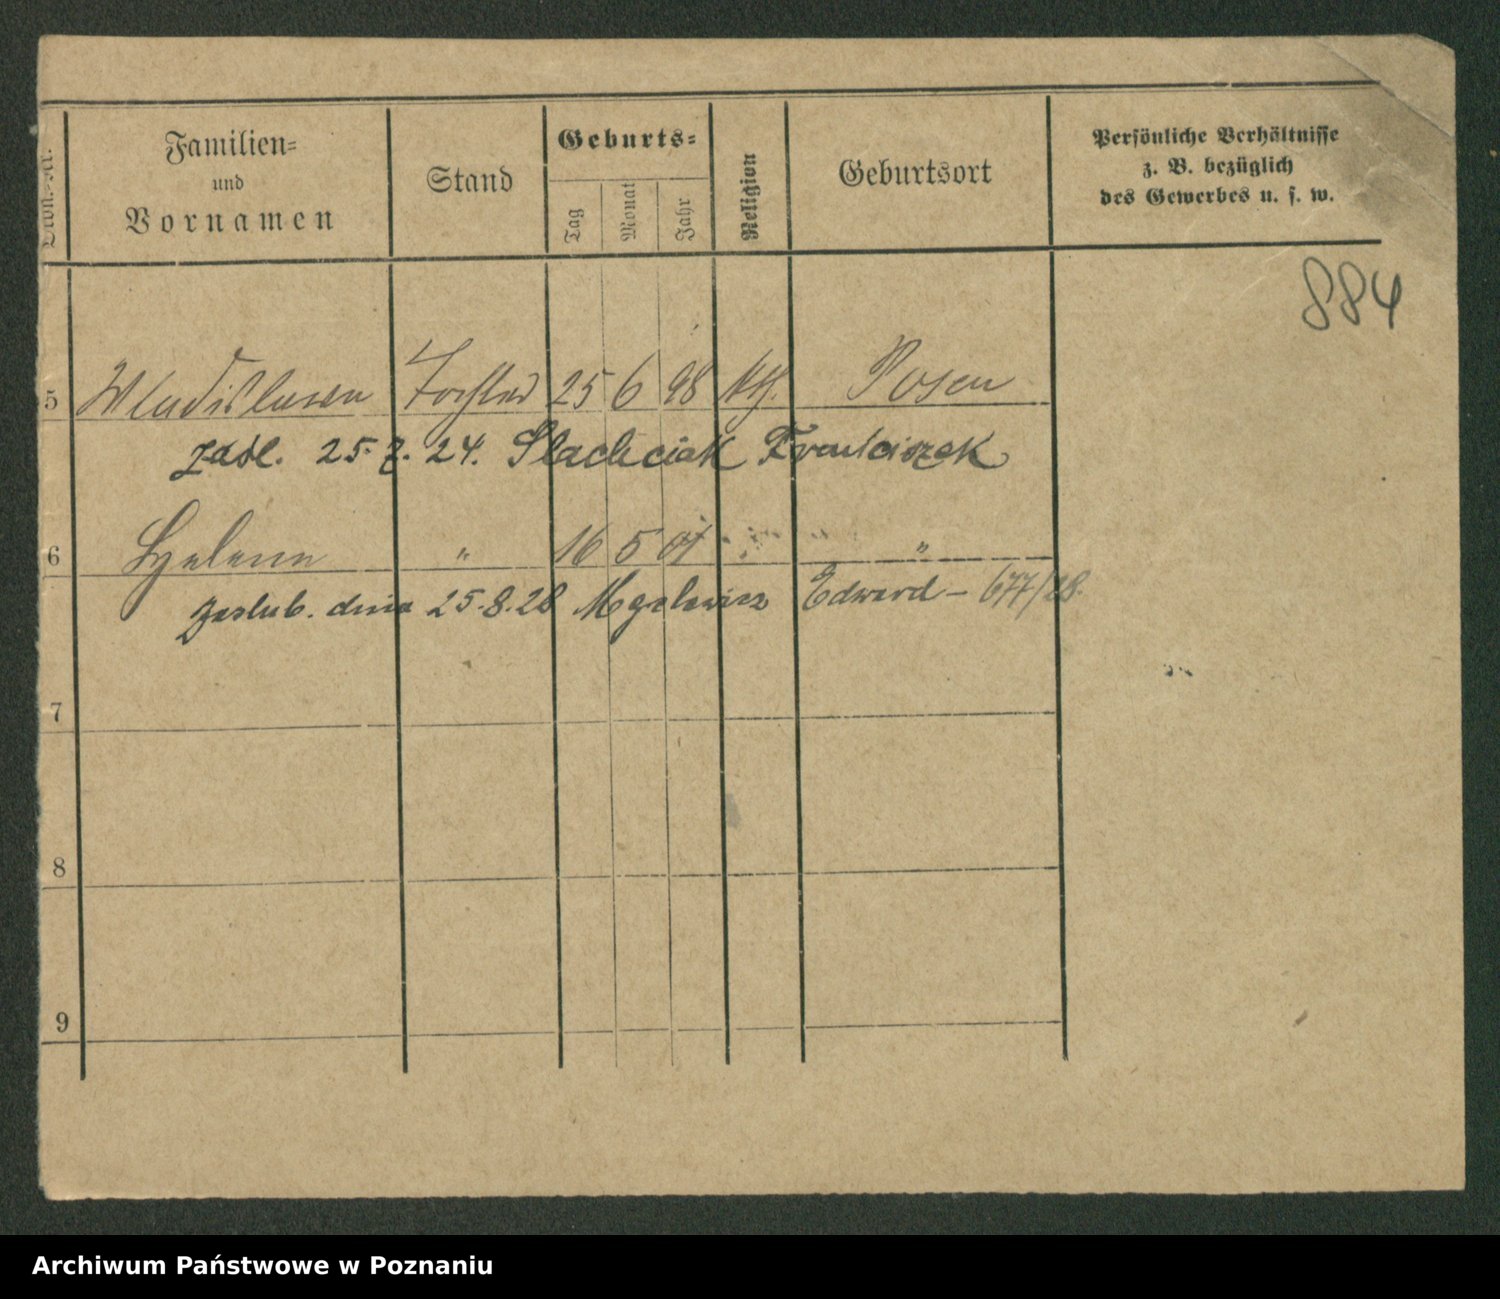 Familien=
und
Vornamen
Stand
Geburts=
Tag
Monat
Jahr
Religion
Geburtsort
Persönliche Verhältnisse
z. B. bezüglich
des Gewerbes u. s. w.
884
5 Wladislawa Tochter 25 6 98 kth. Posen
zaśl. 25.7.24. Ślachciak Franciszek
6 Helena " 16 5 01 "
zaślub. dnia 25.8.28 Edward – 677/28.
7
8
9
Archiwum Państwowe w Poznaniu